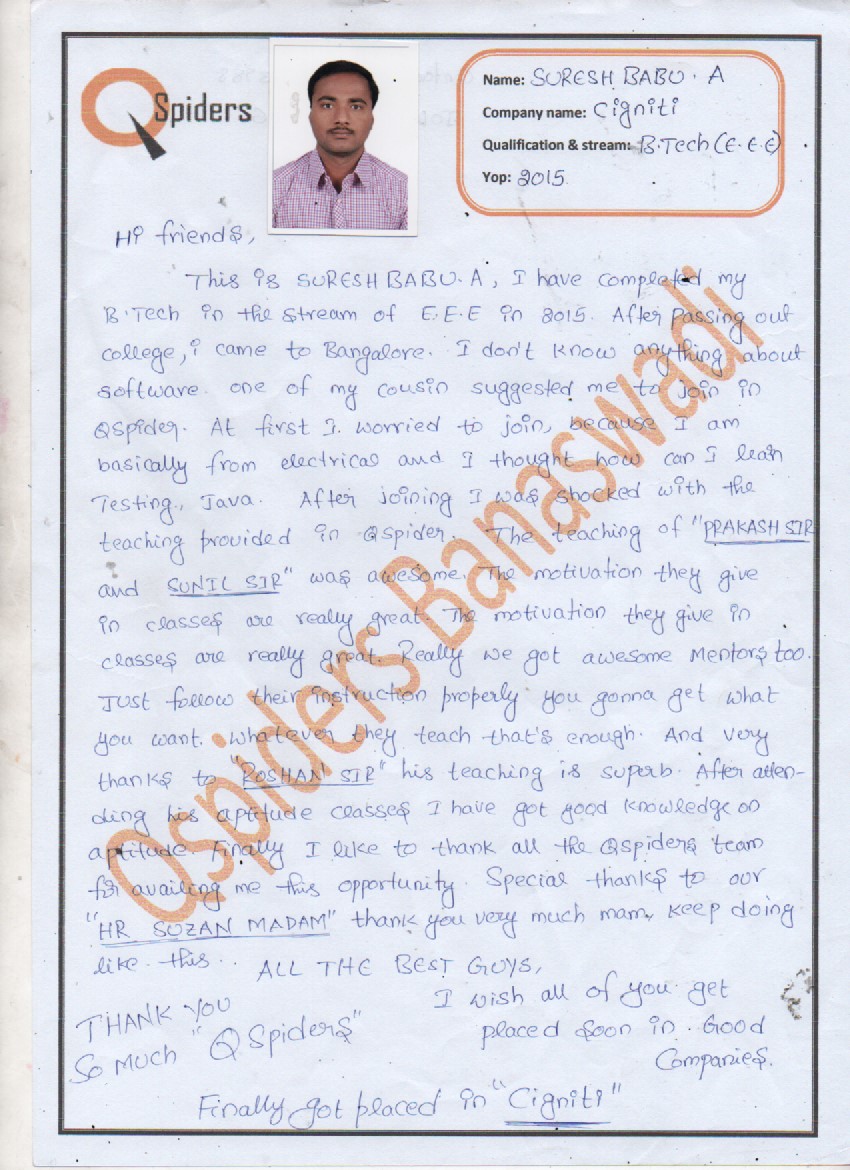 QSpiders
Name: SURESH BABU. A
Company name: Cigniti
Qualification & stream: B.Tech (E.E.E)
Yop: 2015
Hi friends,
This is SURESH BABU.A, I have completed my
B.Tech in the stream of E.E.E in 2015. After passing out
college, i came to Bangalore. I don't know anything about
software. one of my cousin suggested me to join in
QSpider. At first I worried to join, because I am
basically from electrical and I thought how can I learn
Testing, Java. After joining I was shocked with the
teaching provided in Qspider. The teaching of "PRAKASH SIR
and SUNIL SIR" was awesome. The motivation they give
in classes are really great. The motivation they give in
classes are really great. Really we got awesome Mentors too.
Just follow their instruction properly you gonna get what
you want. Whatever they teach that's enough. And very
thanks to "ROSHAN SIR" his teaching is superb. After atten-
ding his aptitude classes I have got good knowledge on
aptitude. Finally I like to thank all the QSpiders team
for availing me this opportunity. Special thanks to our
"HR SUZAN MADAM" thank you very much mam, keep doing
like this..
ALL THE BEST GUYS,
I wish all of you get
placed soon in Good
Companies.
THANK YOU
SO MUCH "QSpiders"
Finally got placed in "Cigniti"
Qspiders Banaswadi